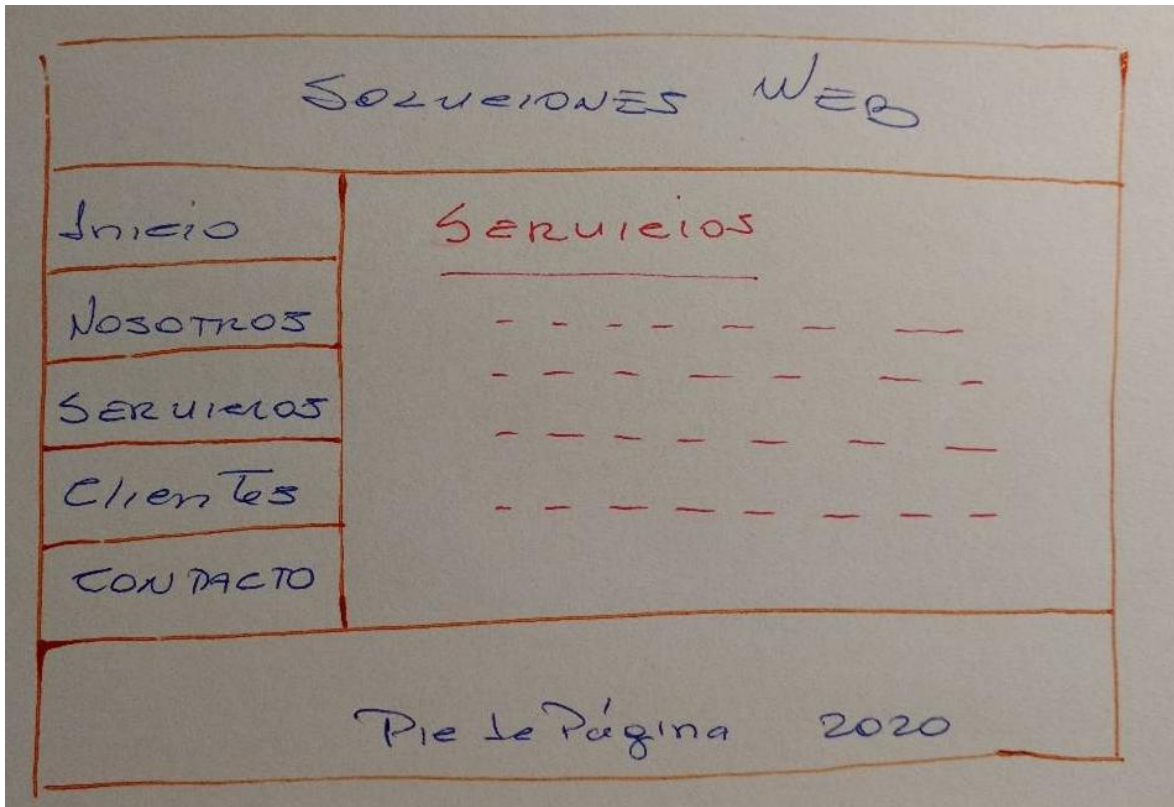 SOLUCIONES WEB
Inicio
NOSOTROS
SERVICIOS
Clientes
CONTACTO
SERVICIOS
Pie de Página 2020